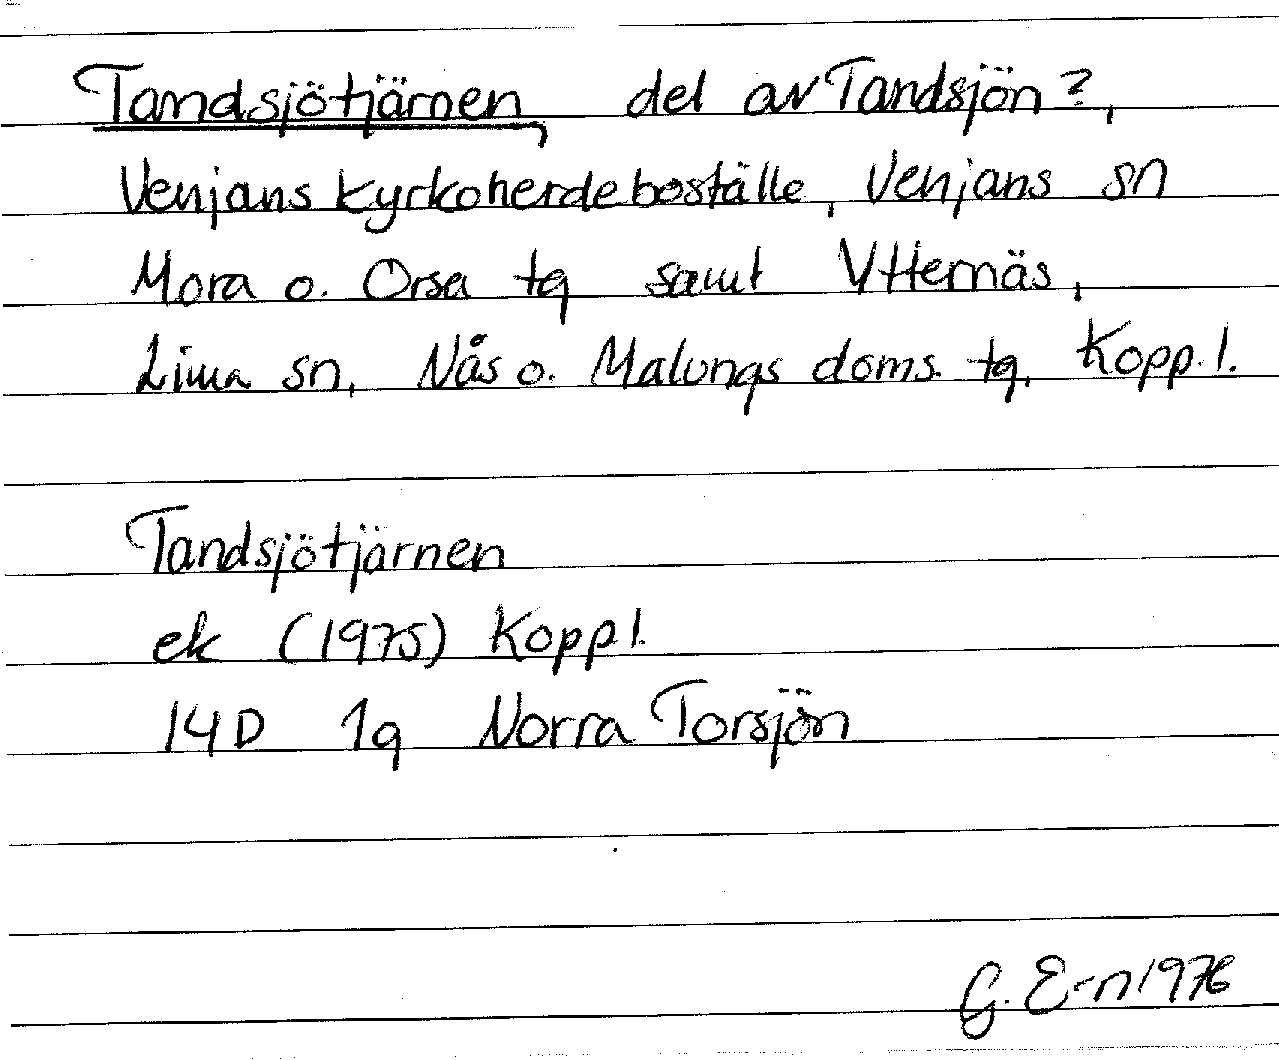 Tandsjötjärnen, del av Tandsjön?,
Venjans kyrkoherdeboställe, Venjans sn
Mora o. Orsa tg samt Ytternäs,
Lima sn, Nås o. Malungs doms. tg, Kopp. l.
Tandsjötjärnen
ek (1975) Kopp l.
14D 1g Norra Torsjön
G. E-n 1976